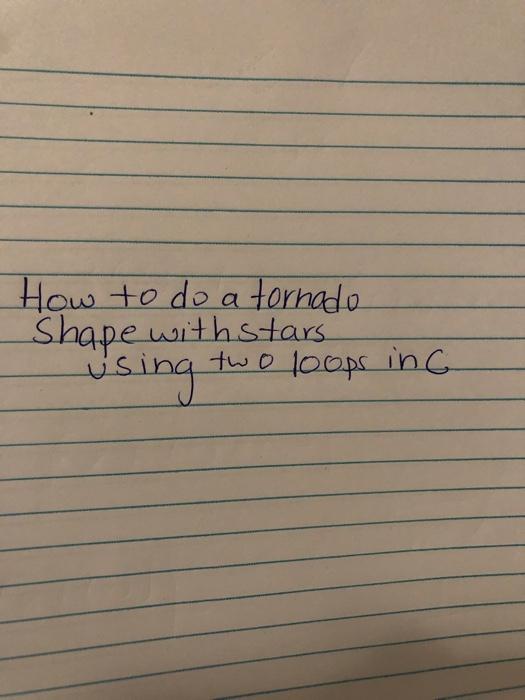 How to do a tornado
Shape with stars
using two loops in C